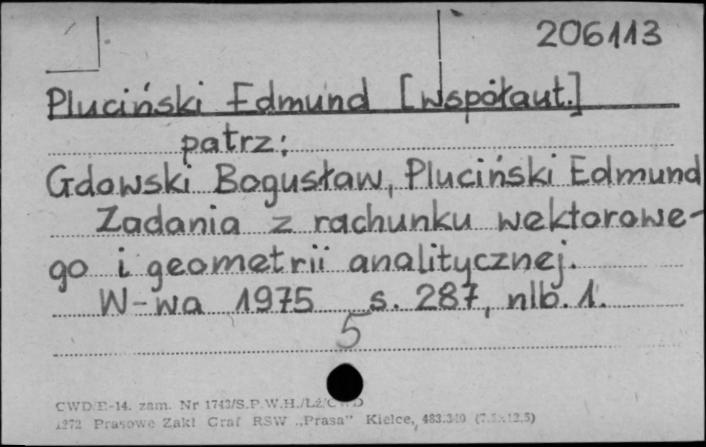 206113
Pluciński Edmund [współaut.]
patrz:
Gdowski Bogusław, Pluciński Edmund
Zadania z rachunku wektorowe-
go i geometrii analitycznej.
W-wa 1975 s. 287, nlb. 1.
5
CWD/E-14. zam. Nr 1743/S.P.W.H./Łż/CWD
1272 Prasowe Zakł Graf RSW „Prasa" Kielce, 483.340 (7.5x12.5)